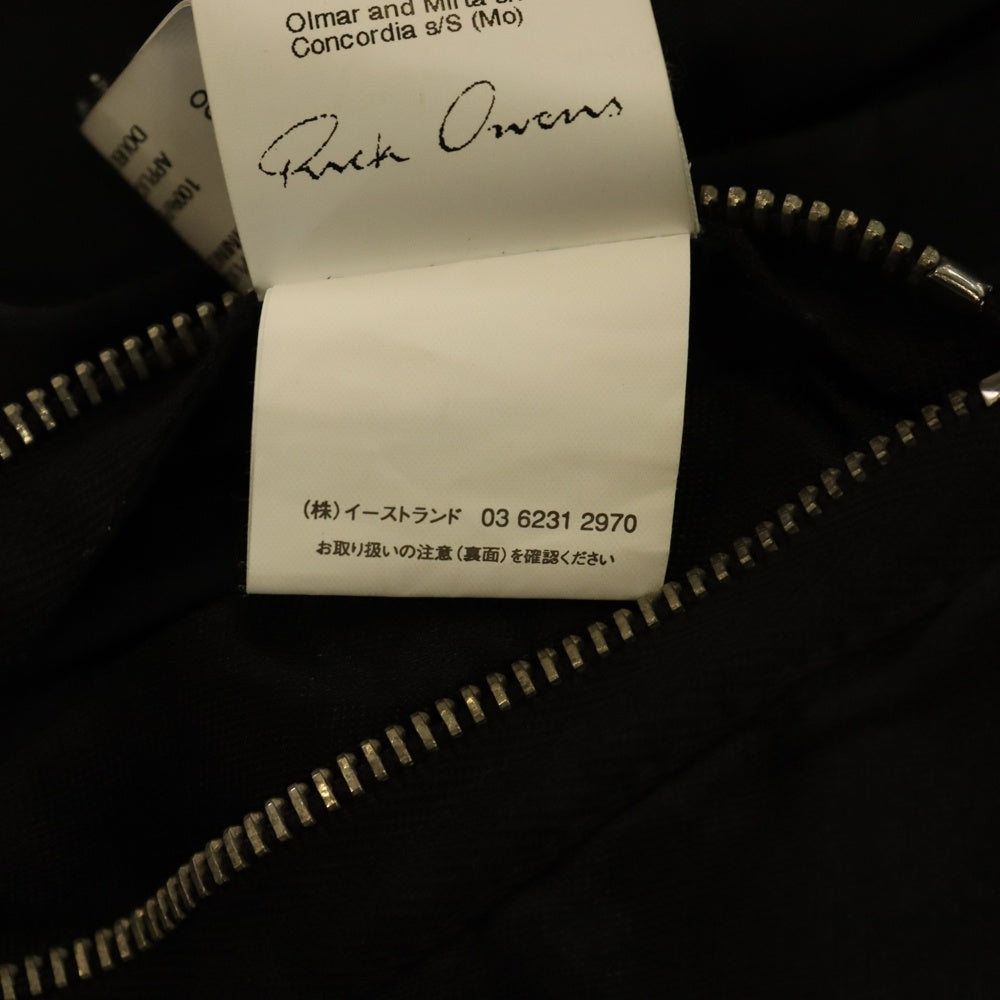 Olmar and Mirta
Concordia s/S (Mo)
Rick Owens
(株)イーストランド 03 6231 2970
お取り扱いの注意(裏面)を確認ください
100%